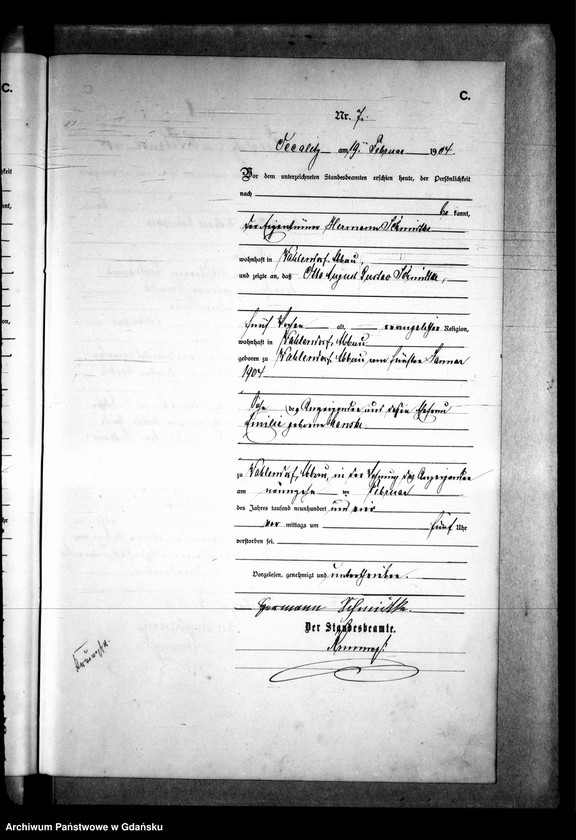 C.
C.
Nr. 7.
am 19. Februar 1904.
Vor dem unterzeichneten Standesbeamten erschien heute, der Persönlichkeit
nach
be kannt,
der Eigenthümer Hermann Schmidtke
wohnhaft in Wahlendorf, Abbau,
und zeigte an, daß Otto August Gustav Schmidtke,
fünf Wochen alt, evangelischer Religion,
wohnhaft in Wahlendorf, Abbau
geboren zu Wahlendorf, Abbau am fünften Januar
1904
Sohn des Anzeigenden und dessen Ehefrau
Emilie geborene
zu Wahlendorf, Abbau, in der Wohnung des Anzeigenden
am neunzehn ten Februar
des Jahres tausend neunhundert und vier
vor mittags um fünf Uhr
verstorben sei.
Vorgelesen, genehmigt und unterschrieben.
Hermann Schmidtke.
Der Standesbeamte.
Archiwum Państwowe w Gdańsku